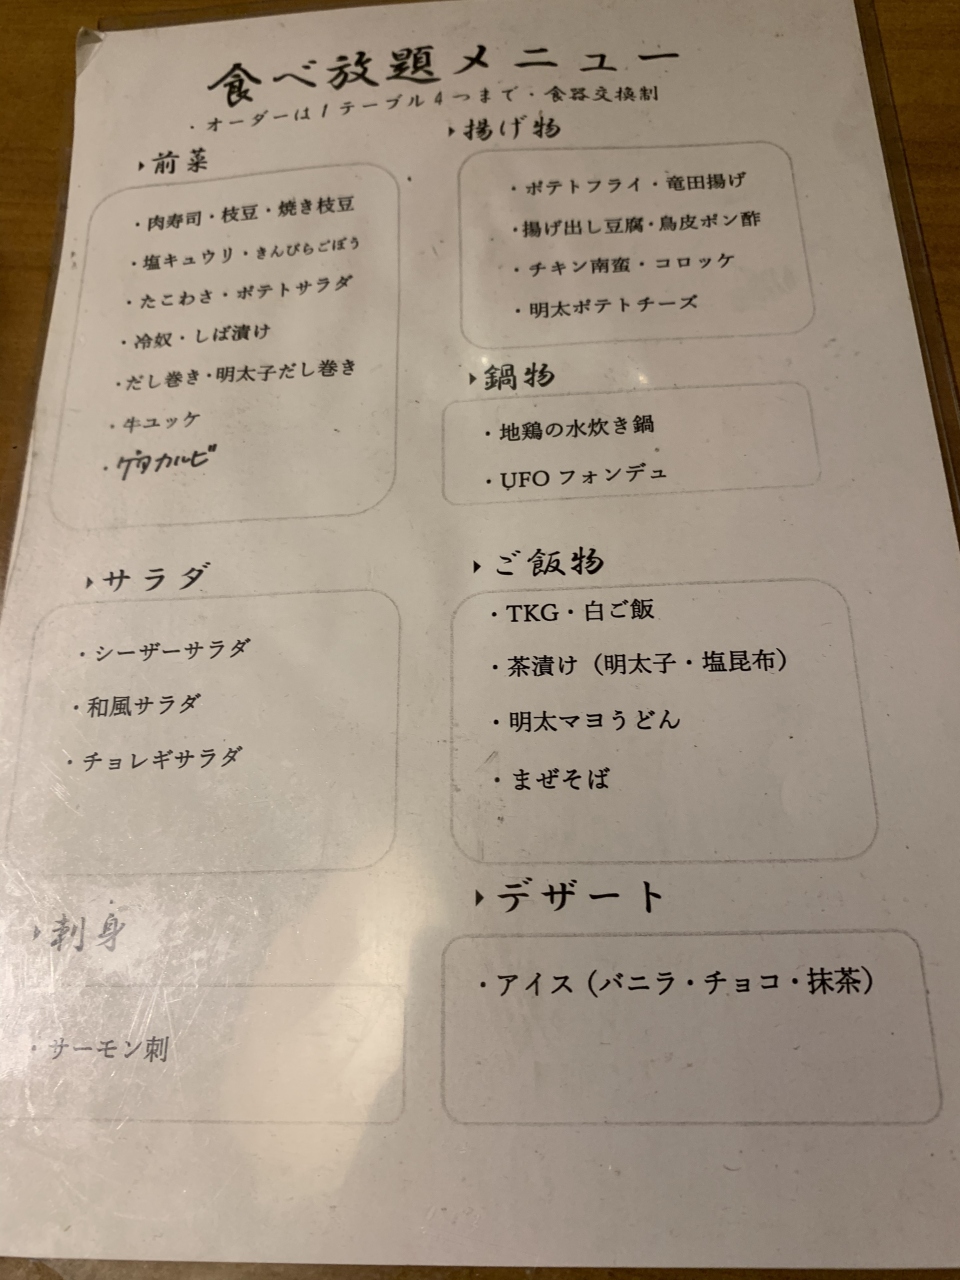 食べ放題メニュー
・オーダーは1テーブル4つまで・食器交換制
前菜
・肉寿司・枝豆・焼き枝豆
・塩キュウリ・きんぴらごぼう
・たこわさ・ポテトサラダ
・冷奴・しば漬け
・だし巻き・明太子だし巻き
・牛ユッケ
・カルビ
サラダ
・シーザーサラダ
・和風サラダ
・チョレギサラダ
刺身
・サーモン刺
揚げ物
・ポテトフライ・竜田揚げ
・揚げ出し豆腐・鳥皮ポン酢
・チキン南蛮・コロッケ
・明太ポテトチーズ
鍋物
・地鶏の水炊き鍋
・UFOフォンデュ
ご飯物
・TKG・白ご飯
・茶漬け（明太子・塩昆布）
・明太マヨうどん
・まぜそば
デザート
・アイス（バニラ・チョコ・抹茶）